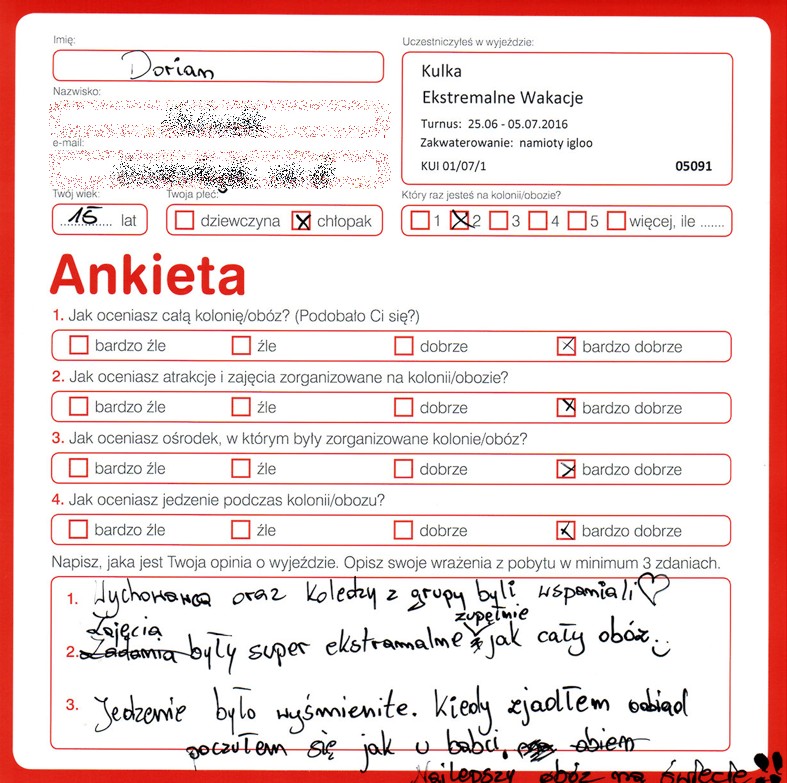 Imię:
Dorian
Nazwisko:
e-mail:
Twój wiek:
15 lat
Twoja płeć:
dziewczyna chłopak
Uczestniczyłeś w wyjeździe:
Kulka
Ekstremalne Wakacje
Turnus: 25.06 - 05.07.2016
Zakwaterowanie: namioty igloo
KUI 01/07/1 05091
Który raz jesteś na kolonii/obozie?
1 2 3 4 5 więcej, ile .......
Ankieta
1. Jak oceniasz całą kolonię/obóz? (Podobało Ci się?)
bardzo źle źle dobrze bardzo dobrze
2. Jak oceniasz atrakcje i zajęcia zorganizowane na kolonii/obozie?
bardzo źle źle dobrze bardzo dobrze
3. Jak oceniasz ośrodek, w którym były zorganizowane kolonie/obóz?
bardzo źle źle dobrze bardzo dobrze
4. Jak oceniasz jedzenie podczas kolonii/obozu?
bardzo źle źle dobrze bardzo dobrze
Napisz, jaka jest Twoja opinia o wyjeździe. Opisz swoje wrażenia z pobytu w minimum 3 zdaniach.
1. Wychowawca oraz koledzy z grupy byli wspaniali♡
Zajęcia zupełnie
2. Zadania były super ekstramalne jak cały obóz
3. Jedzenie było wyśmienite. Kiedy zjadłem obiad
poczułem się jak u babci. obiem
Najlepszy obóz na świecie!!